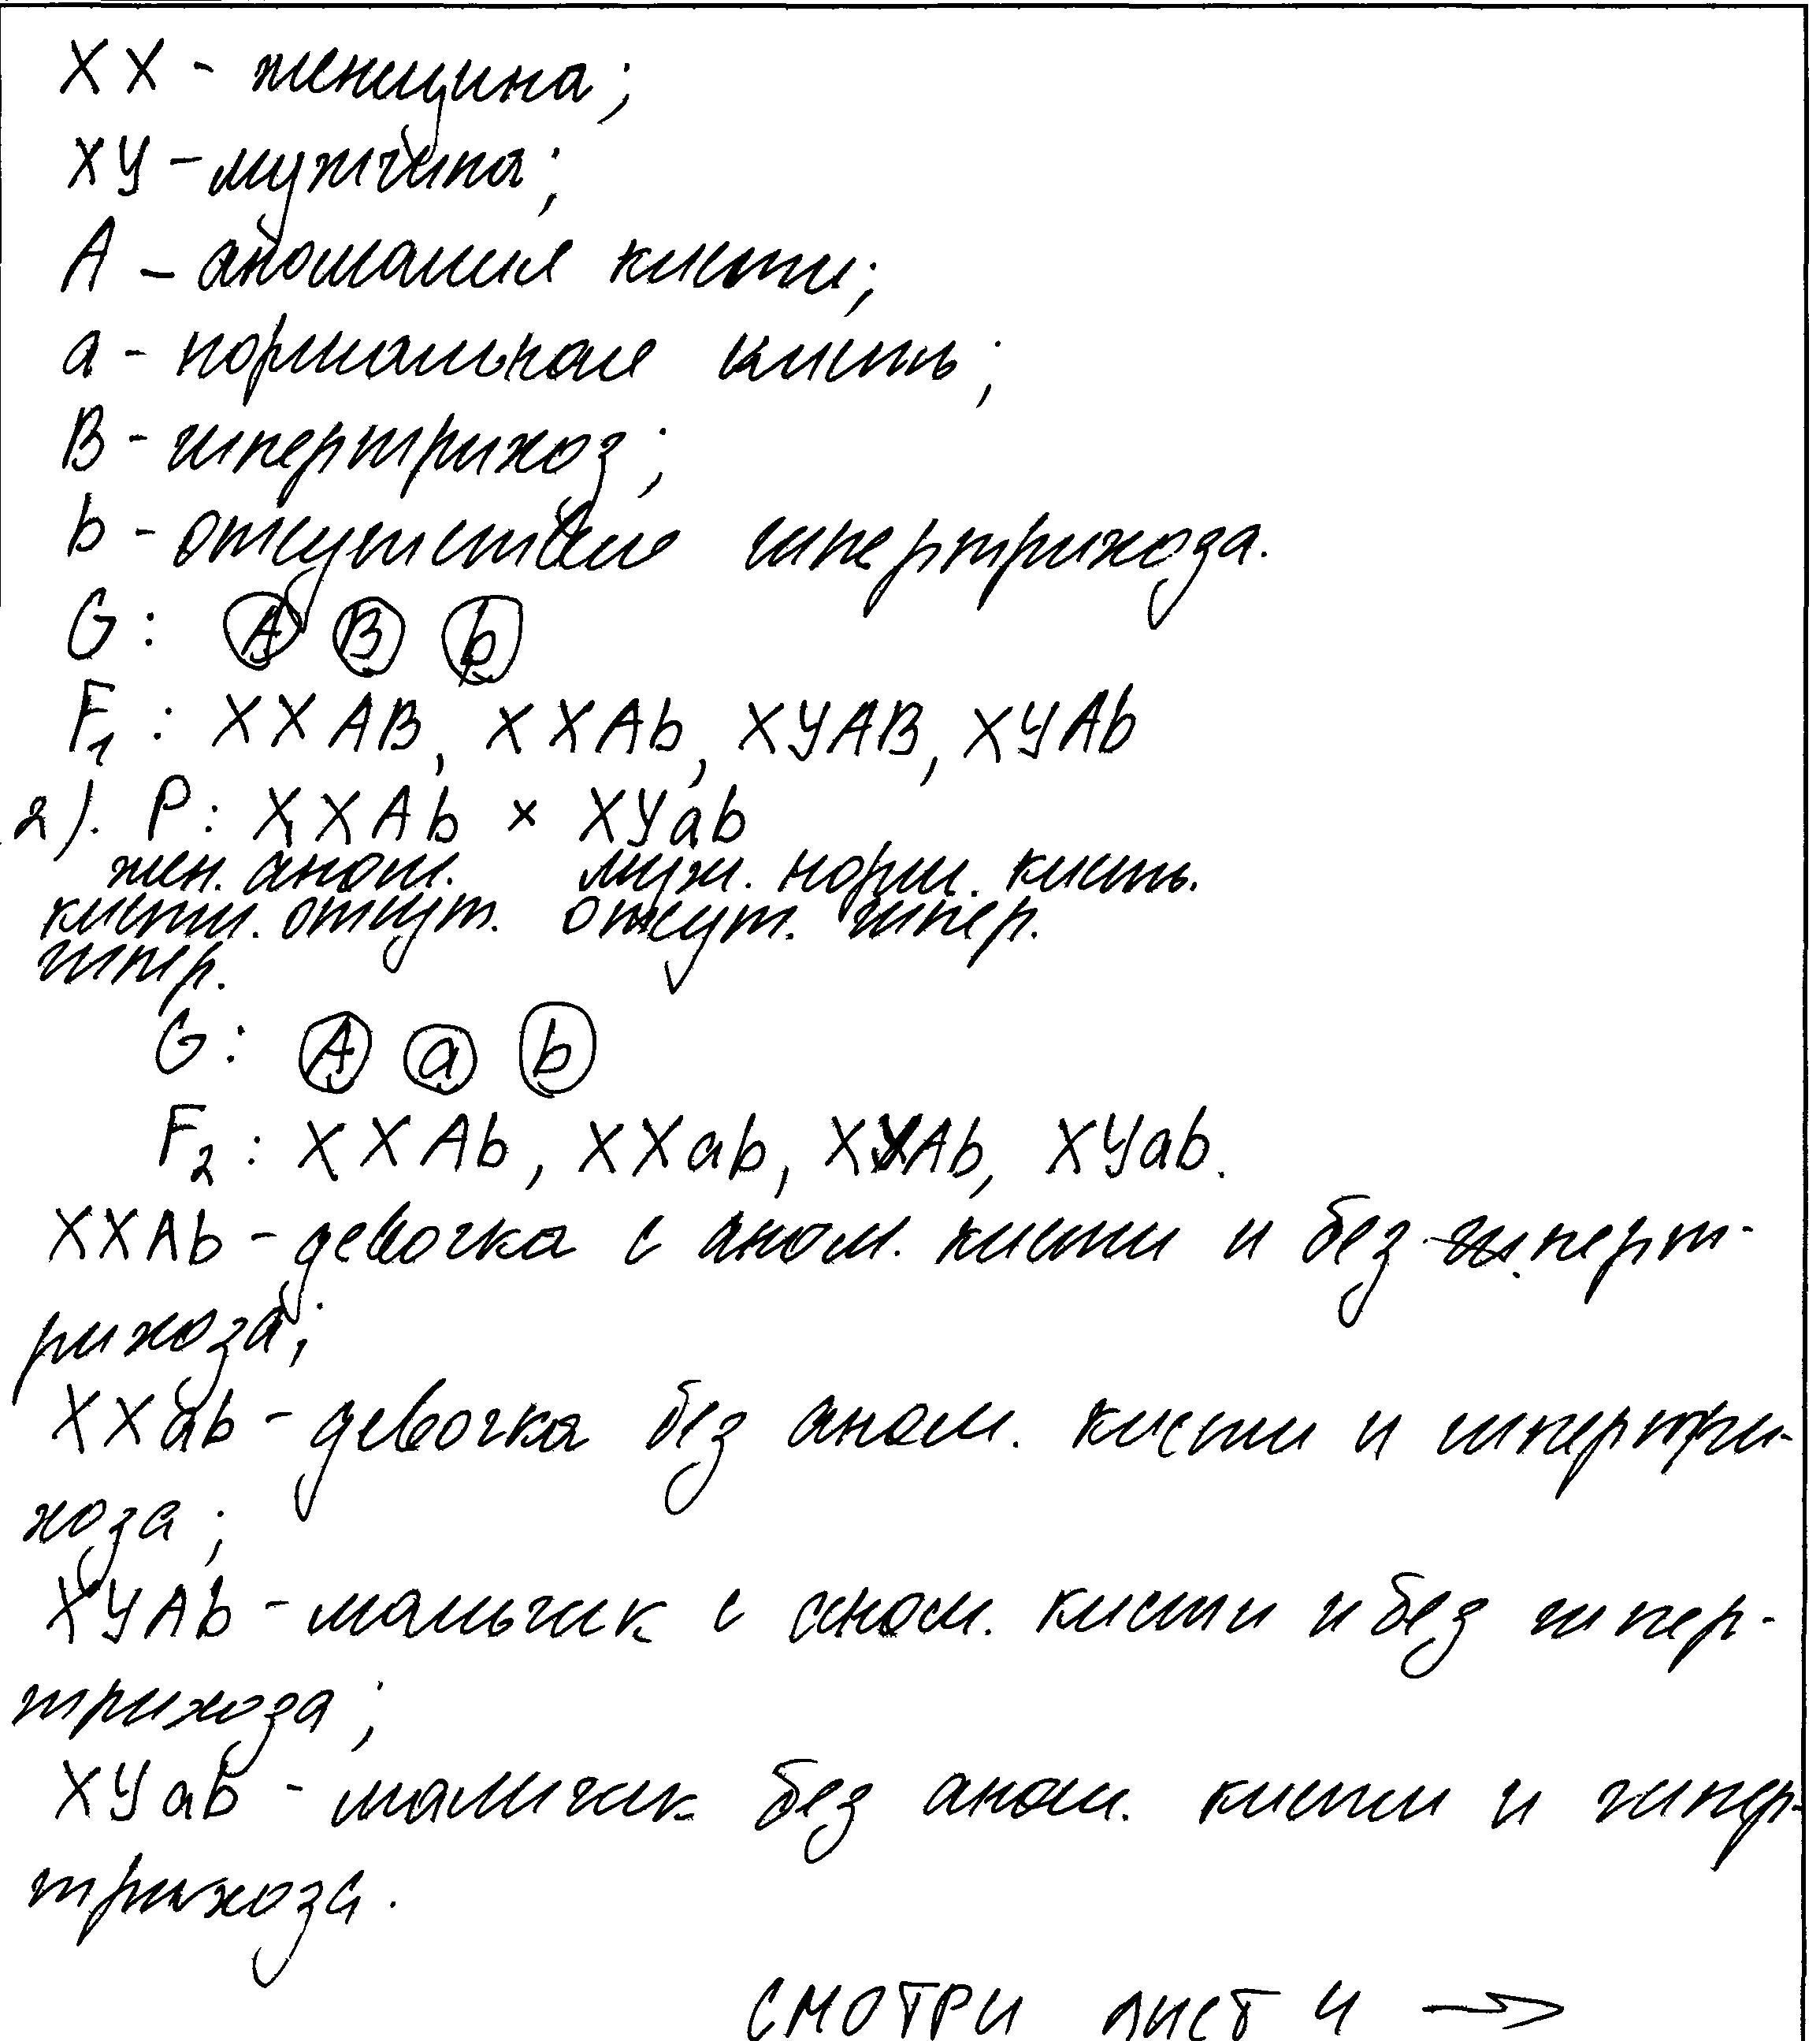 XX - женщина;
XY - мужчина;
A - аномалия кисти;
a - нормальная кисть;
B - гипертрихоз;
b - отсутствие гипертрихоза.
G: A B b
F1: XXAB, XXAb, XYAB, XYAb
2). P: XXAb × XYab
жен. аном. муж. норм. кисть.
кисти. отсут. отсут. гипер.
гипер.
G: A a b
F2: XXAb, XXab, XYAb, XYab.
XXAb - девочка с аном. кисти и без гиперт-
рихоза;
XXab - девочка без аном. кисти и гипертри-
хоза;
XYAb - мальчик с аном. кисти и без гипер-
трихоза;
XYab - мальчик без аном. кисти и гипер-
трихоза.
СМОТРИ ЛИСТ 4 →